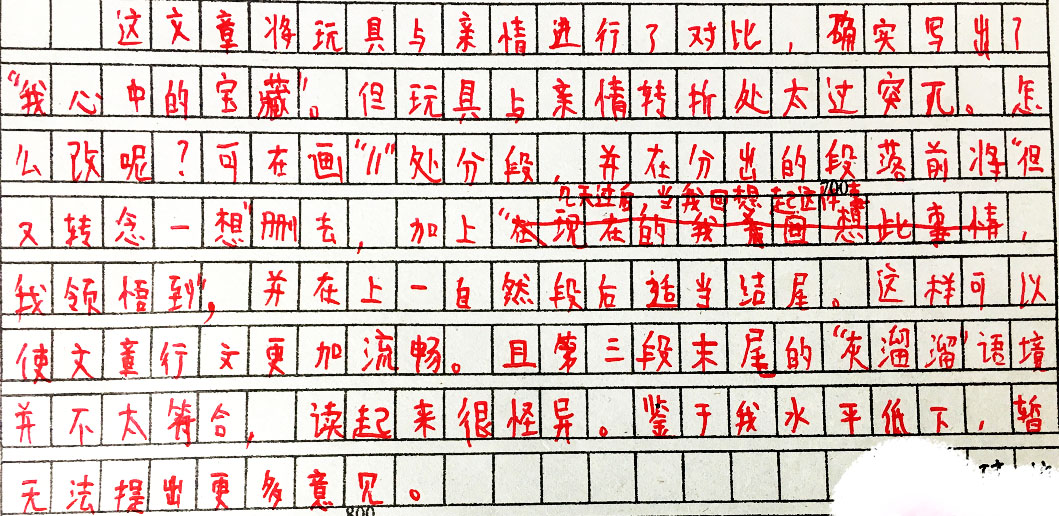 这文章将玩具与亲情进行了对比，确实写出了
“我心中的宝藏”。但玩具与亲情转折处太过突兀。怎
么改呢？可在画“//”处分段，并在分出的段落前将“但
几天过后，当我回想起这件事
700
又转念一想”删去，加上“在现在的我看回想此事情，
我领悟到”，并在上一自然段后适当结尾。这样可以
使文章行文更加流畅。且第三段末尾的“灰溜溜”语境
并不太符合，读起来很怪异。鉴于我水平低下，暂
无法提出更多意见。
800